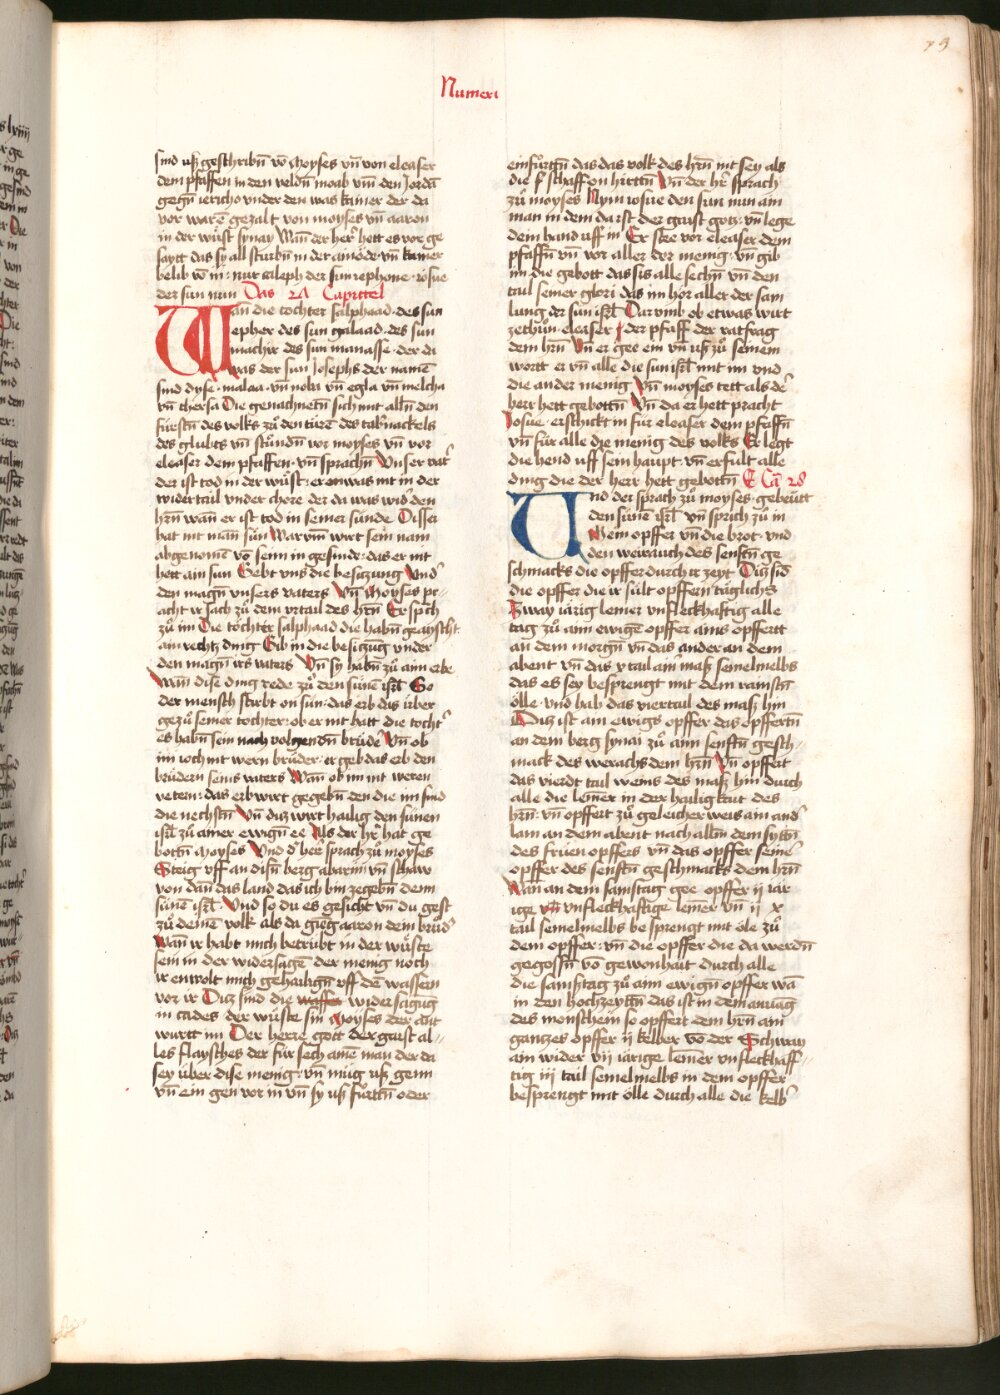 79
Numeri
sind uß geschribñ võ Moyses vñ von eleaser
dem pfaffen in den veldñ moab vm̃ den Jordã
gegñ iericho vnder den was kainer der da
vor warẽ gezalt von moyses vñ aaron
in der wuͤst synay Wañ der herꝰ hett es vor ge
saytt das sy all sturbñ in der ainoͤde vñ kainer
belib võ in: nur caleph der sun iephone · iosue
der sun nun Das 27 Capittel
Wan die tochter salphaad · des sun
epher des sun galaad · des sun
machir des sun manasse · der da
was der sun Josephs der namẽ
sind dyse · malaa · vñ noba vñ egla vñ melcha
vñ thersa Die genachnetñ sich mit allñ den
fuͤrstñ des volks zuͦ den tuͤrẽ des tab'nackels
des gluͤbts vñ stuͦndñ vor moyses vñ vor
eleaser dem pfaffen · vñ sprachñ Vnser vat'
der ist tod in der wuͤst: er enwas nit in der
widertail vnder chore der da was wid' den
hrñ wañ er ist tod in seiner suͤnde Disser
hat nit mañ suͤn Warvm̃ wirt sein nam
abgenomẽ võ seim in gesinde: das er nit
hett ain sun Gebt vns die besiczung Vnd'
den magñ vnsers vaters Vñ Moyses pr-
acht ir sach zuͦ dem vrtail des hrñ Er sp̃ch
zuͦ im Die toͤchter salphaad die habñ geayscht
ain rechtz ding Gib in die besiczũg vnder
den magñ irs vaters Vñ sy habñ zuͦ aim erbe
Wañ dise ding rede zuͦ den suͤnẽ isrl̃ So
der mensch stirbt on sun: das erb das uͤber
gezuͦ seiner tochter: ob er nit hatt die tocht'
es habñ sein nach volgendñ bruͤde' Vñ ob
im ioch nit wern bruͤder: er geb das erb den
bruͤdern seins vaters Wañ ob im nit weren
vetern: das erb wirt gegebñ den die im sind
die nechstñ Vñ diz wirt hailig den suͤnen
isrl̃ zuͦ ainer ewigñ ee Als der hr̃ hat ge
bottñ Moyses Vnd d' herr sprach zuͦ moyses
Steig vff an disñ berg abarim vñ schaw
von dañ das land das ich bin zegebñ denn
suͤnẽ isrl̃ Vnd so du es gesicht vñ du gest
zuͦ deinẽ volk als da gieng aaron dein bruͤd'
Wañ ir habt mich betruͤbt in der wuͤste
sein in der widersagẽ der menig noch
ir enwolt mich gehailigñ vff dẽ wassern
vor ir Diz sind die wasser widersagũg
in cades der wuͤste sin Moyses der ant
wurtt im Der herre gott der gaist al-
les flaysches der fuͤr sech ainẽ man der da
sey uͤber dise menig: vñ muͤg uß genn
vñ ein gen vor in vñ sy uß fuͤrttñ oder
einfuͤrttñ das das volk des hrñ nit sey als
die schaff on hirttñ Vñ der hr̃ sprach
zuͦ moyses Nym iosue den sun nun ain
man in dem da ist der gaist gotz: vñ lege
dein hand uff in Er stee vor eleaser dem
pfaffñ vñ vor aller der menig: vñ gib
im die gebott das sis alle sechñ vñ den
tail seiner glori das im hoͤr aller der sam
lung der sun isrl̃ Darvmb ob etwas wirt
zethuͦn · eleaser der pfaff der ratfrag
dem hrñ Vñ er gee ein vñ uß zuͦ seinem
wortt er vñ alle die sun isrl̃ mit im vnd
die ander menig Vñ moyses tett als de'
herr hett gebottñ Vñ da er hett pracht
Josue · er schickt in fuͤr eleaser dem pfaffñ
vñ fuͤr alle die menig des volks Er legt
die hend uff sein haupt · vñ erfult alle
ding die der herr hett gebottñ Cã 28
Und der sprach zuͦ moyses · gebeuͤtt
den suͤnẽ isrl̃ vñ sprich zuͦ in
Mein opffer vñ die brot · vnd
den weirauch des senftñ ge
schmacks die opffer durch ir zeyt Diz sĩd
die opffer die ir suͤlt opffern taͤglichs
Zway iarig lemer vnfleckhaftig alle
tag zuͦ aim ewigẽ opffer ains opffertt
an dem morgñ vñ das ander an dem
abent vñ das x tail aim' maß semelmelbs
das es sey besprengt mit dem rainstñ
oͤlle · vnd hab das viertail des maß hin
Diz ist ain ewigs opffer das opffertñ
an dem berg synai zuͦ aim senftñ gesch-
mack des werachs dem hrñ Vñ opffert
das vierdt tail weins des maß hin durch
alle die lemer in der hailigkait des
hrñ: vñ opffert zuͦ geleicher weis ain and'
lam an dem abent nach allm dem syttñ
des fruͤen opffers vñ das opffer seine'
opffer des senftñ geschmacks dem hrñ
Wañ an dem samstag gee opffer ij iar
ige vñ vnfleckhaftige lemer vñ ij x
tail semelmelbs besprengt mit oͤle zuͦ
dem opffer: vñ die opffer die da werdñ
gegossñ võ gewonhait durch alle
die samßtag zuͦ aim ewigñ opffer wã
in den hochzeyttñ das ist in dem anuag
des monschein so opffert dem hrñ ain
ganczes opffer ij kelber võ der Schwaig
ain wider vij iarige lemer vnfleckhaff-
tig iij tail semelmelbs in dem opffer
besprengt mit oͤlle durch alle die kelb'